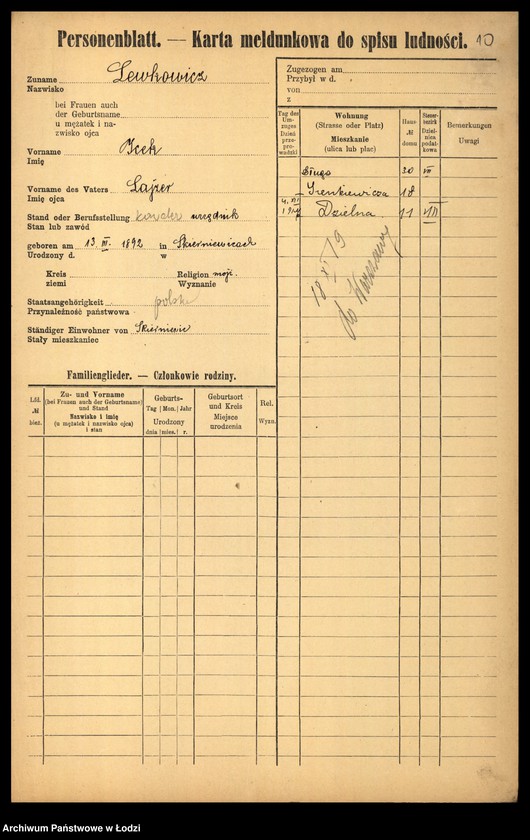 Personenblatt. — Karta meldunkowa do spisu ludności. 10
Zuname Lewkowicz
Nazwisko
bei Frauen auch
der Geburtsname
u mężatek i na-
zwisko ojca
Vorname Icek
Imię
Vorname des Vaters Lajzer
Imię ojca
Stand oder Berufsstellung urzędnik
Stan lub zawód
geboren am 13. III. 1892 in Skierniewicach
Urodzony d. w
Kreis Religion mojż.
ziemi Wyznanie
Staatsangehörigkeit polska
Przynależność państwowa
Ständiger Einwohner von Skierniewic
Stały mieszkaniec
Familienglieder. — Członkowie rodziny.
Lfd. № bież.
Zu- und Vorname
(bei Frauen auch der Geburtsname)
und Stand
Nazwisko i imię
(u mężatek i nazwisko ojca)
i stan
Geburts-
Tag Mon. Jahr
Urodzony
dnia mies. r.
Geburtsort
und Kreis
Miejsce
urodzenia
Rel.
Wyzn.
Zugezogen am
Przybył w d.
von
z
Tag des
Um-
zuges
Dzień
prze-
prowadzki
Wohnung
(Strasse oder Platz)
Mieszkanie
(ulica lub plac)
Haus-
№
domu
Steuer-
bezirk
Dziel-
nica
podat-
kowa
Bemerkungen
Uwagi
Długa 30 VII
Sienkiewicza 18
Dzielna 11
18 XI 19
do Warszawy
Archiwum Państwowe w Łodzi